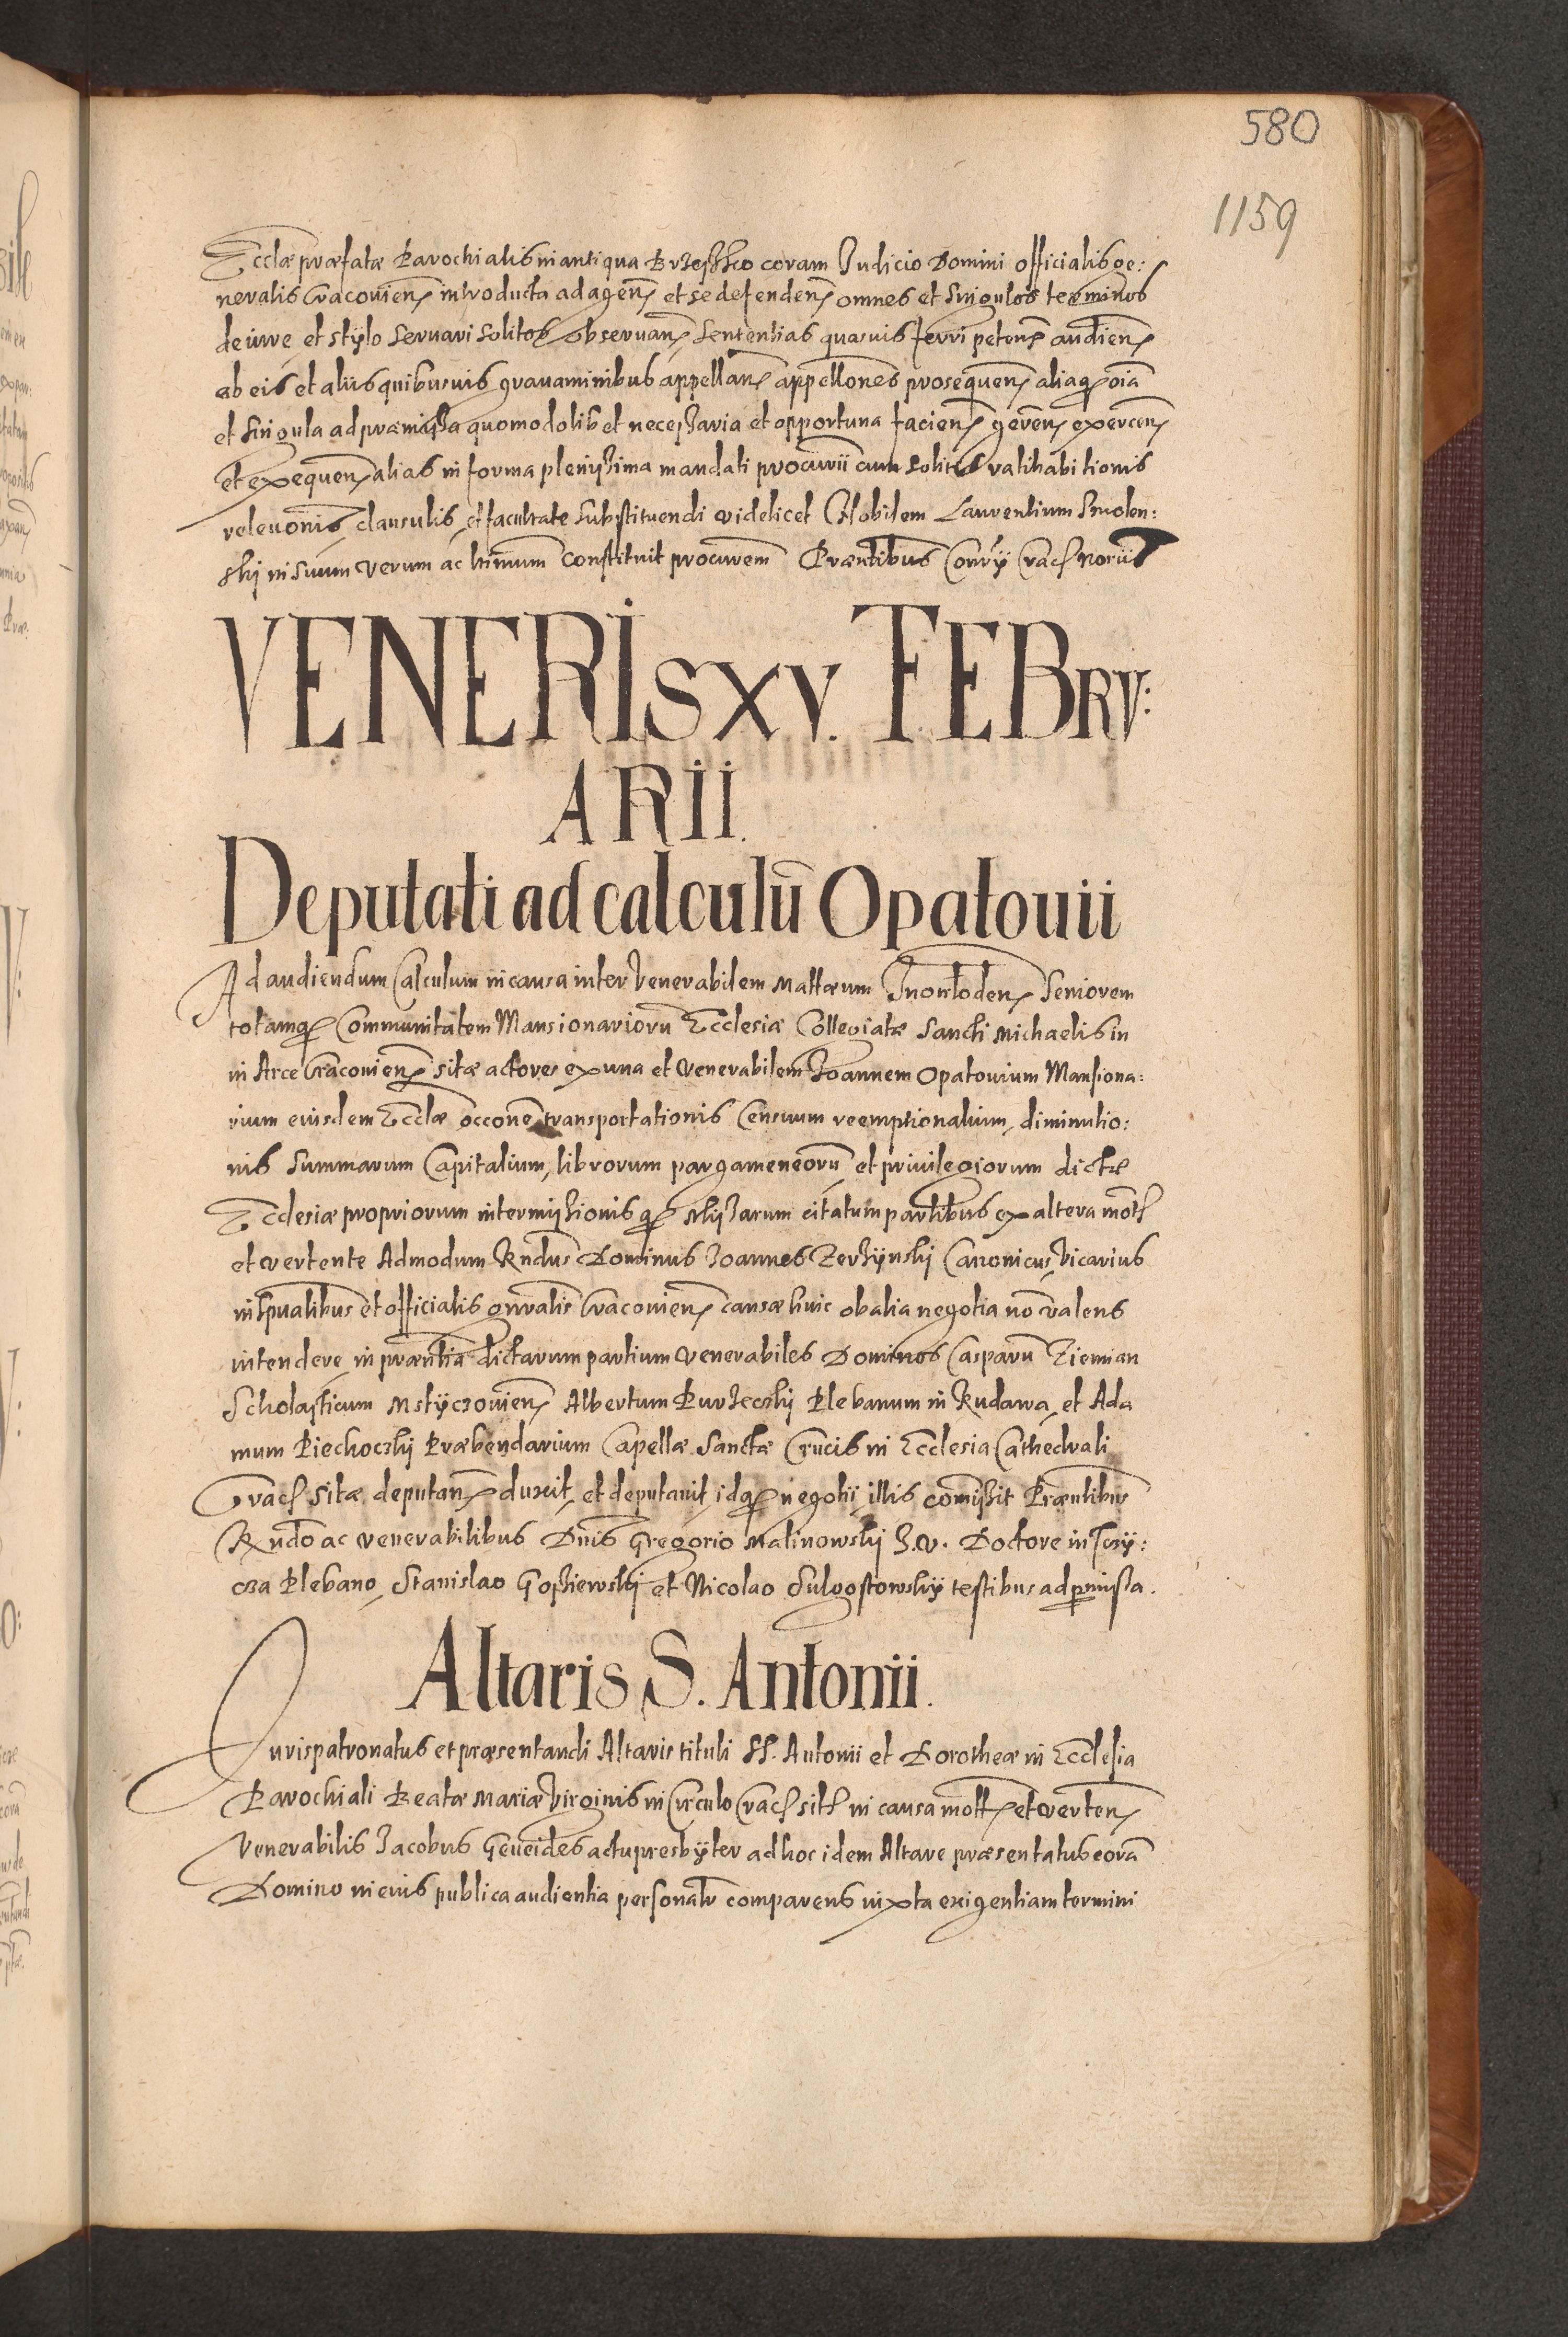 580
1159
Ecclæ præfatæ Parochialis in antiqua Brzesko coram Judicio Domini officialis ge:
neralis Cracouien̄ introducta ad agen̄ et se defenden̄ omnes et singulos terminos
de iure et stylo seruari solitos obseruan̄ sententias quasuis ferri peten̄ audien̄
ab eis et aliis quibusuis grauaminibus appellan̄ appellones prosequen̄ aliaq3 oīa
et singula ad præmissa quomodolibet necessaria et opportuna facien̄ geren̄ exercen̄
et exequen̄ alias in forma plenissima mandati procurii cum solitis ratihabitionis
releuonis clausulis et facultate substituendi videlicet Nobilem Laurentium Smolen:
ski in suum verum ac ltimum constituit procurem Præntibus
VENERIS XV. FEBRV:
ARII.
Deputati ad calculū Opatouii
Ad audiendum Calculum in causa inter Venerabilem Mattæum Inowloden̄ Seniorem
totamq3 Communitatem Mansionariorū Ecclesiæ Collegiatæ Sancti Michaelis in
in Arce Cracouien̄ sitæ actores ex una et Venerabilem Joannem Opatouium Mansiona:
rium eiusdem Ecclæ occone transportationis Censuum reemptionalium, diminutio:
nis Summarum Capitalium, librorum pargameneorū et priuilegiorum dictæ
Ecclesiæ propriorum intermissionisq3 Missarum citatum partibus ex altera mot
et vertente Admodum Rndus Dominus Joannes Zerzynski Canonicus Vicarius
in Spualibus et officialis gnralis Cracouien̄ causæ huic ob alia negotia nō valens
intendere in præntia dictarum partium venerabiles Dominos Casparū Ziemian
Scholasticum Mstyczouien̄ Albertum Purzeczki Plebanum in Rudawa, et Ada
mum Piechoczki Præbendarium Capellæ Sanctæ Crucis in Ecclesia Cathedrali
Crac sitæ deputan̄ duxit, et deputauit, idq3 negotii illis comissit Præntibus
Rndo ac venerabilibus Dnis Gregorio Malinowski J.V. Doctore in Tczy:
cza Plebano, Stanislao Gosziewski et Nicolao Sulgostowsky testibus ad pmissa.
Altaris S. Antonii.
Jurispatronatus et præsentandi Altaris tituli SS. Antonii et Dorotheæ in Ecclesia
Parochiali Beatæ Mariæ Virginis in Circulo Crac sit in causa mot et verten̄
Venerabilis Jacobus Geueides actu presbyter ad hoc idem Altare præsentatus corā
Domino in eius publica audientia personalr comparens iuxta exigentiam termini